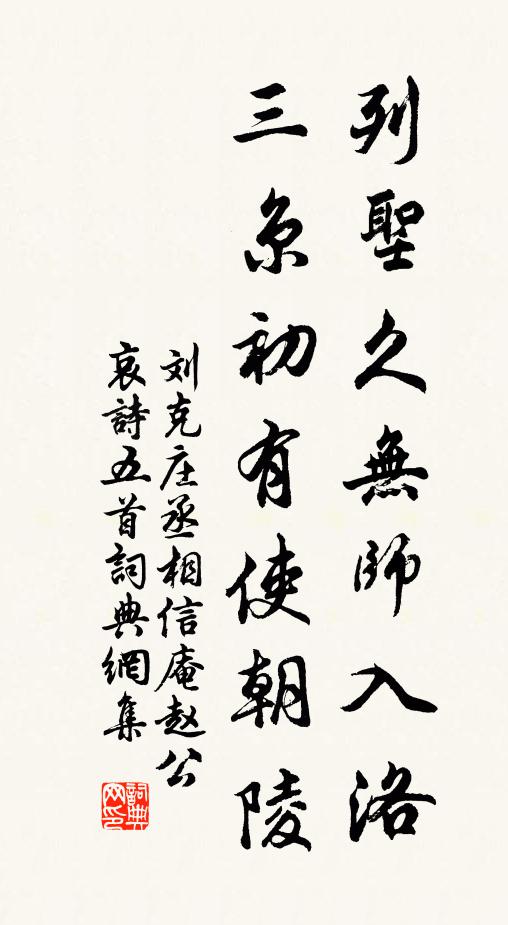 列聖久無師入洛
三京初有使朝陵
刘克庄丞相信庵赵公
哀詩五首詞典網集
詞典网印